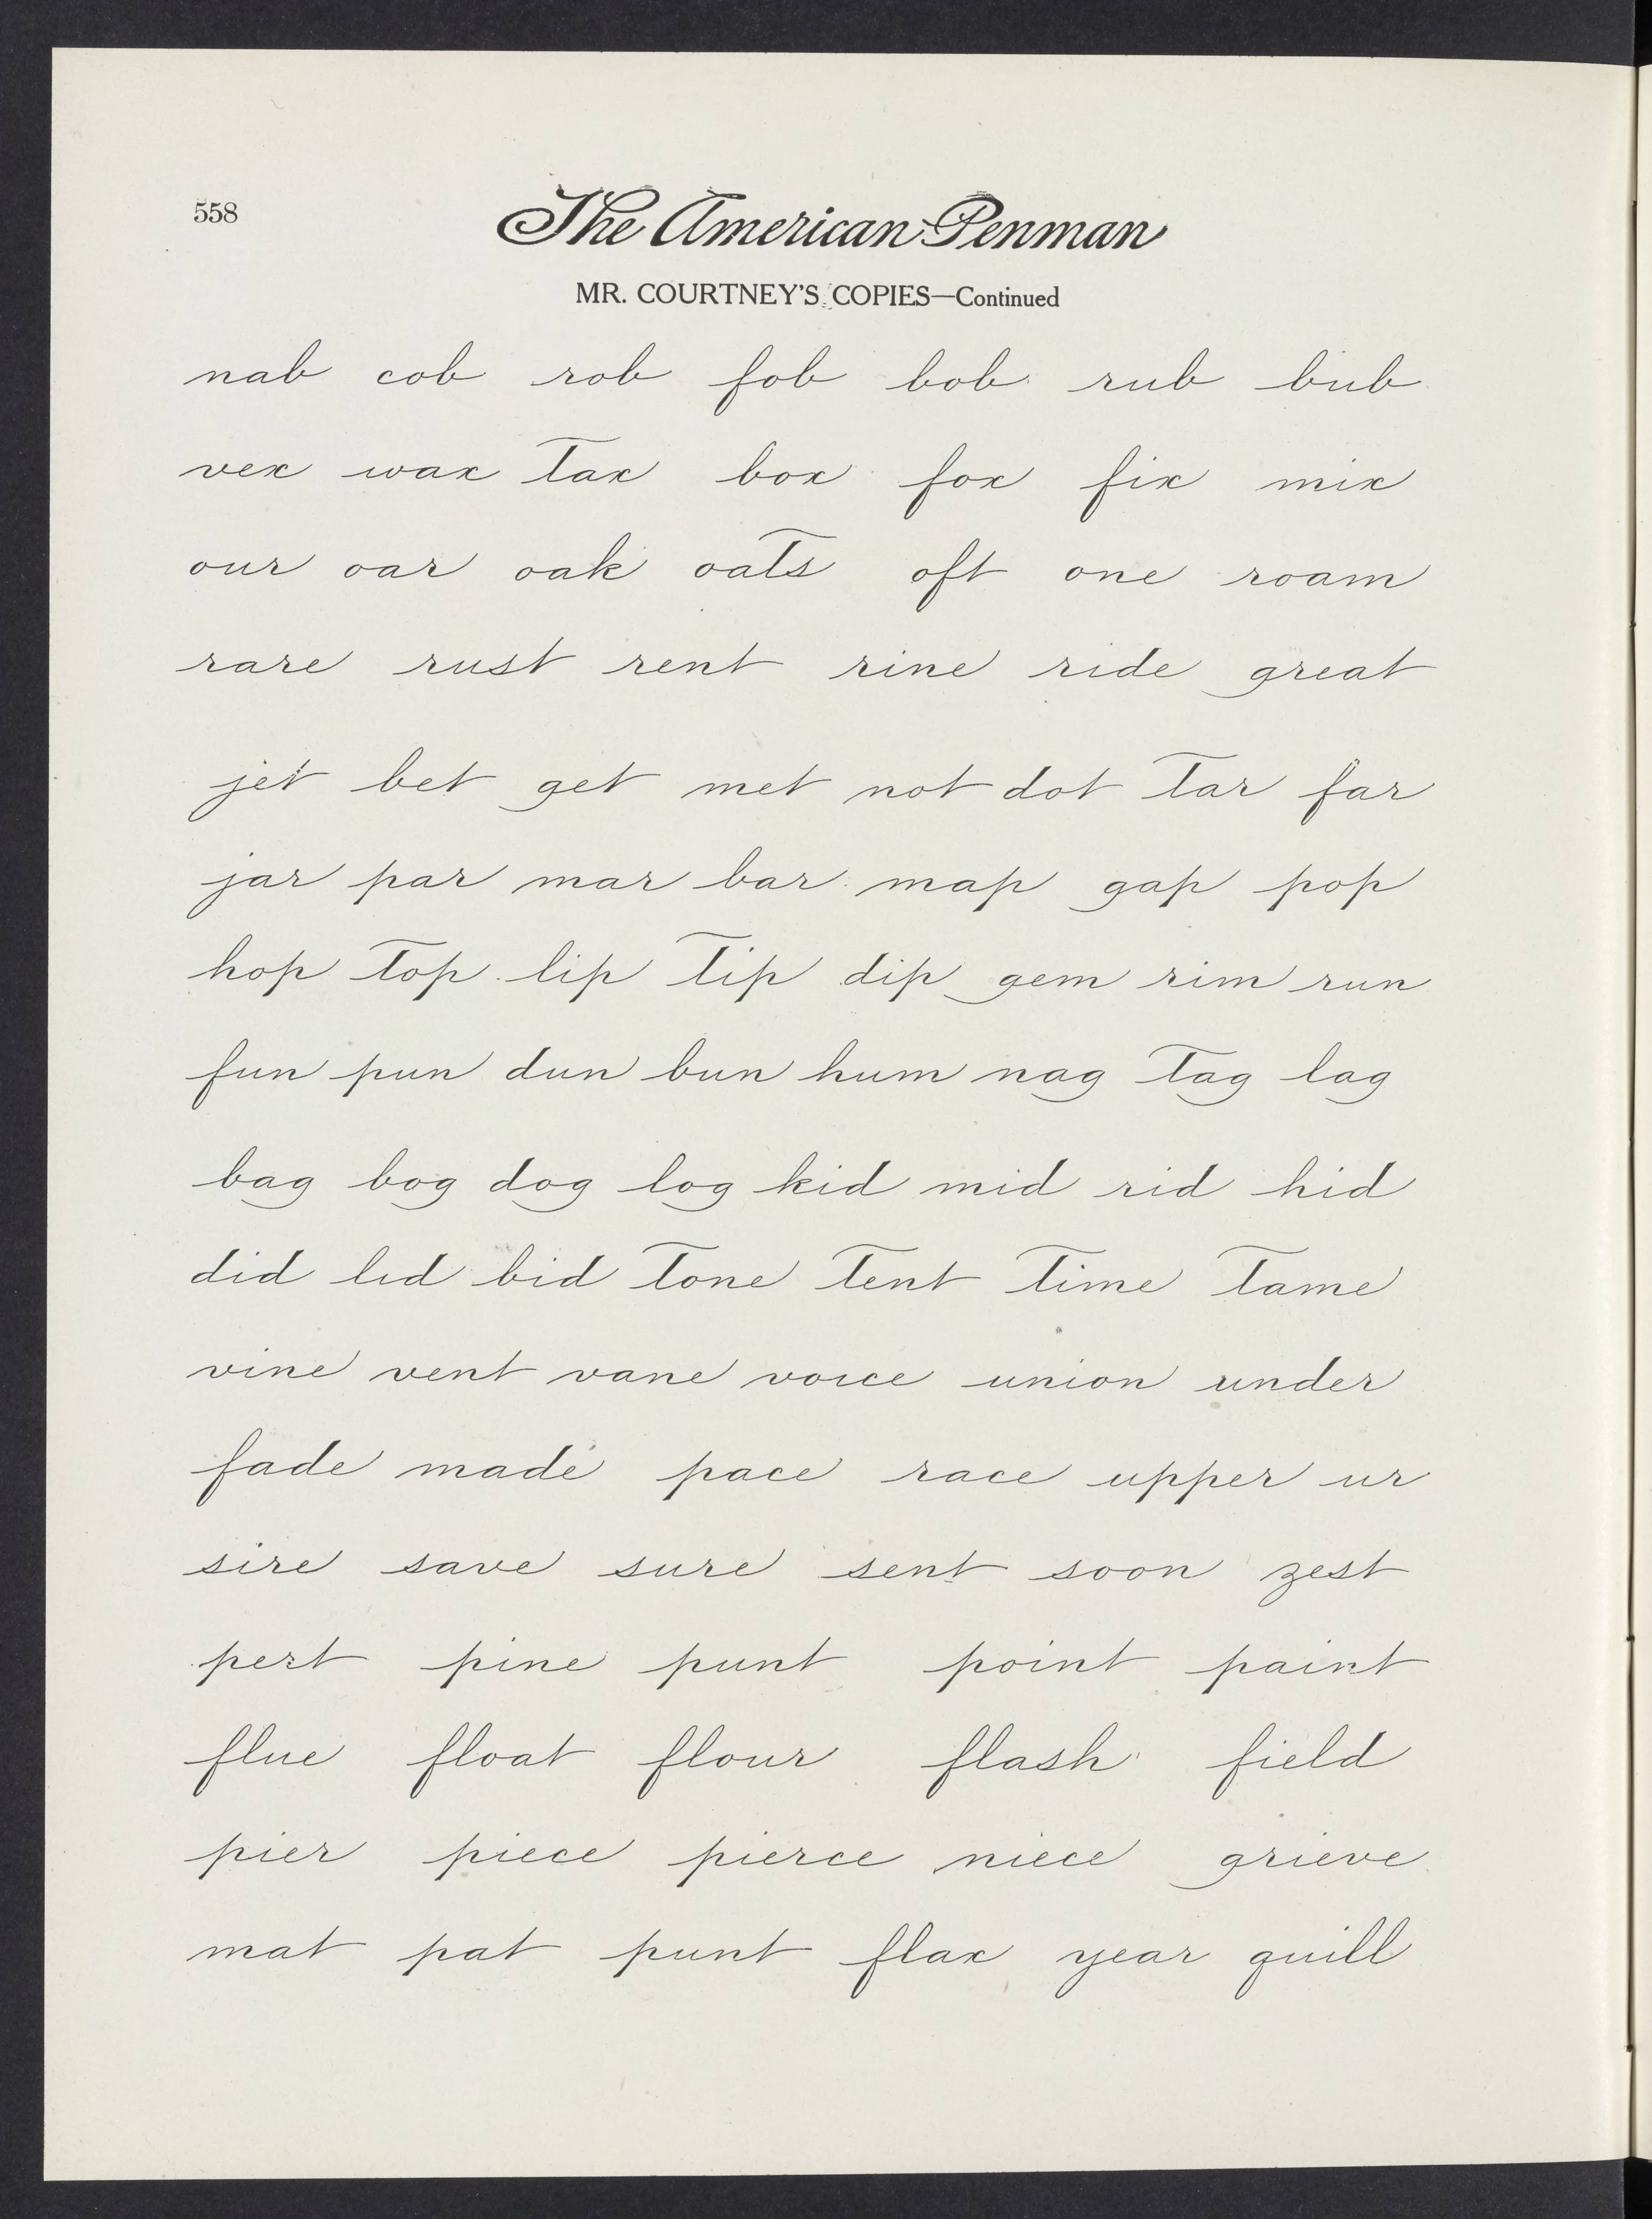 558
The American Penman
MR. COURTNEY'S COPIES—Continued
nab cob rob fob bob rub bub
vex wax tax box fox fix mix
our oar oak oats oft one roam
rare rust rent rine ride great
jet bet get met not dot tar far
jar par mar bar map gap pop
hop top lip tip dip gem rim run
fun pun dun bun hum nag tag lag
bag bog dog log kid mid rid hid
did lid bid tone tent time tame
vine vent vane voice union under
fade made pace race upper ur
sire save sure sent soon zest
pert pine punt point paint
flue float flour flash field
pier piece pierce niece grieve
mat pat punt flax year quill